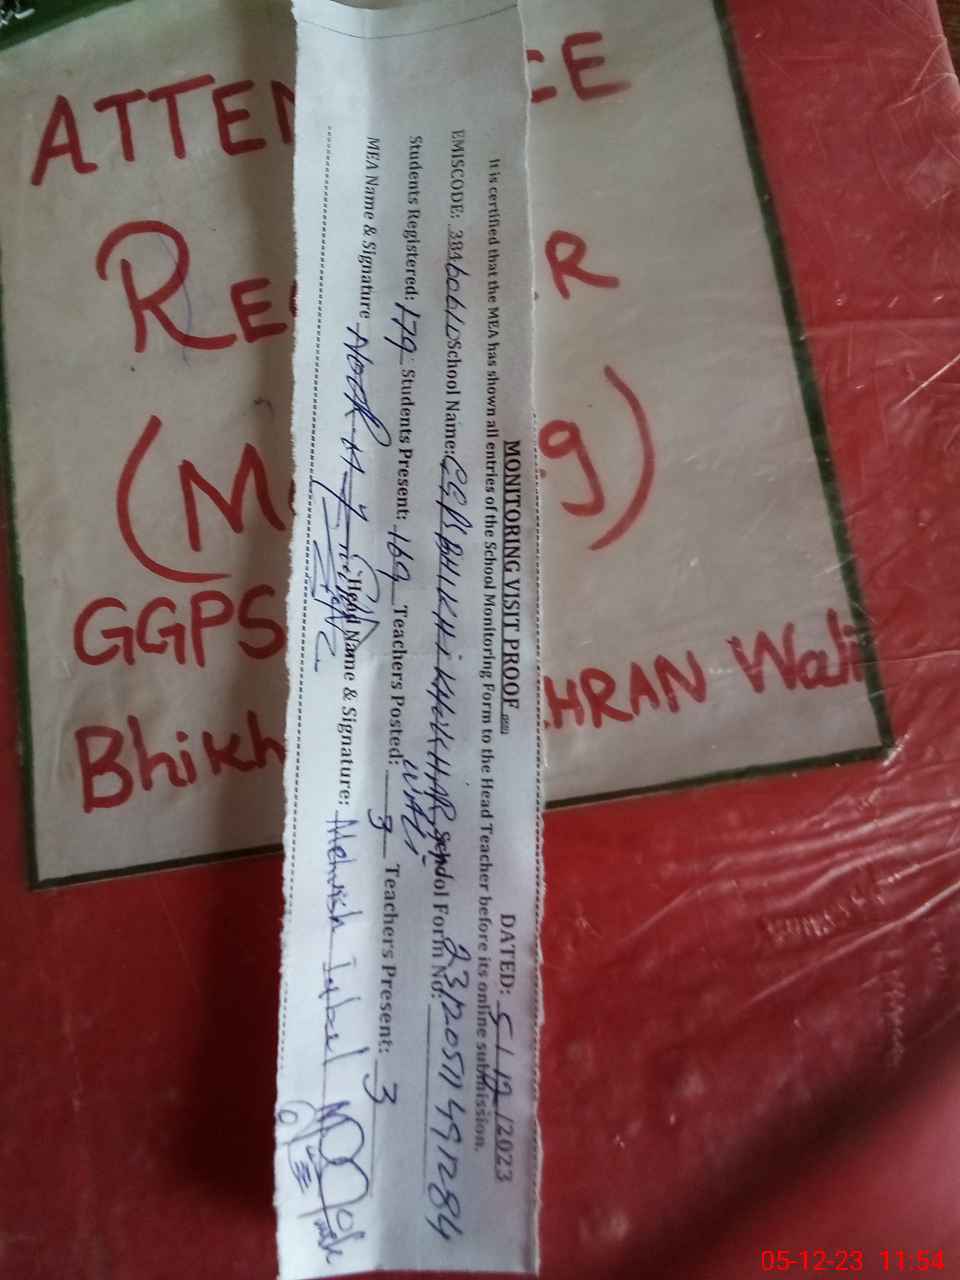 ATTEN CE
RE R
(M g)
GGPS
Bhikh HRAN Wali
MONITORING VISIT PROOF
DATED: 5/12/2023
It is certified that the MEA has shown all entries of the School Monitoring Form to the Head Teacher before its online submission.
EMISCODE: School Name: BHIKHI KHOKHHAR WALI School Form No: 23120511491284
Students Registered: 179 Students Present: 169 Teachers Posted: 3 Teachers Present: 3
MEA Name & Signature NOOR Head Name & Signature: Mehvish
05-12-23 11:54